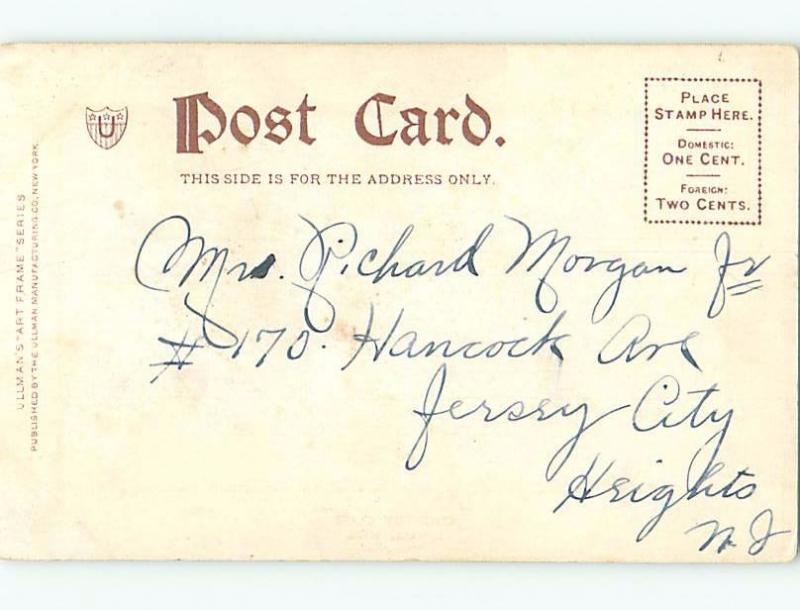 U
Post Card.
THIS SIDE IS FOR THE ADDRESS ONLY.
PLACE
STAMP HERE.
DOMESTIC:
ONE CENT.
FOREIGN:
TWO CENTS.
ULLMAN'S "ART FRAME" SERIES
PUBLISHED BY THE ULLMAN MANUFACTURING CO. NEW YORK.
Mrs. Richard Morgan Jr
# 170. Hancock Ave
Jersey City
Heights
N. J